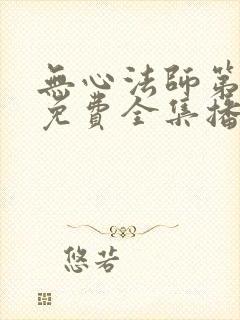 無心法師第
免費全集播
悠若